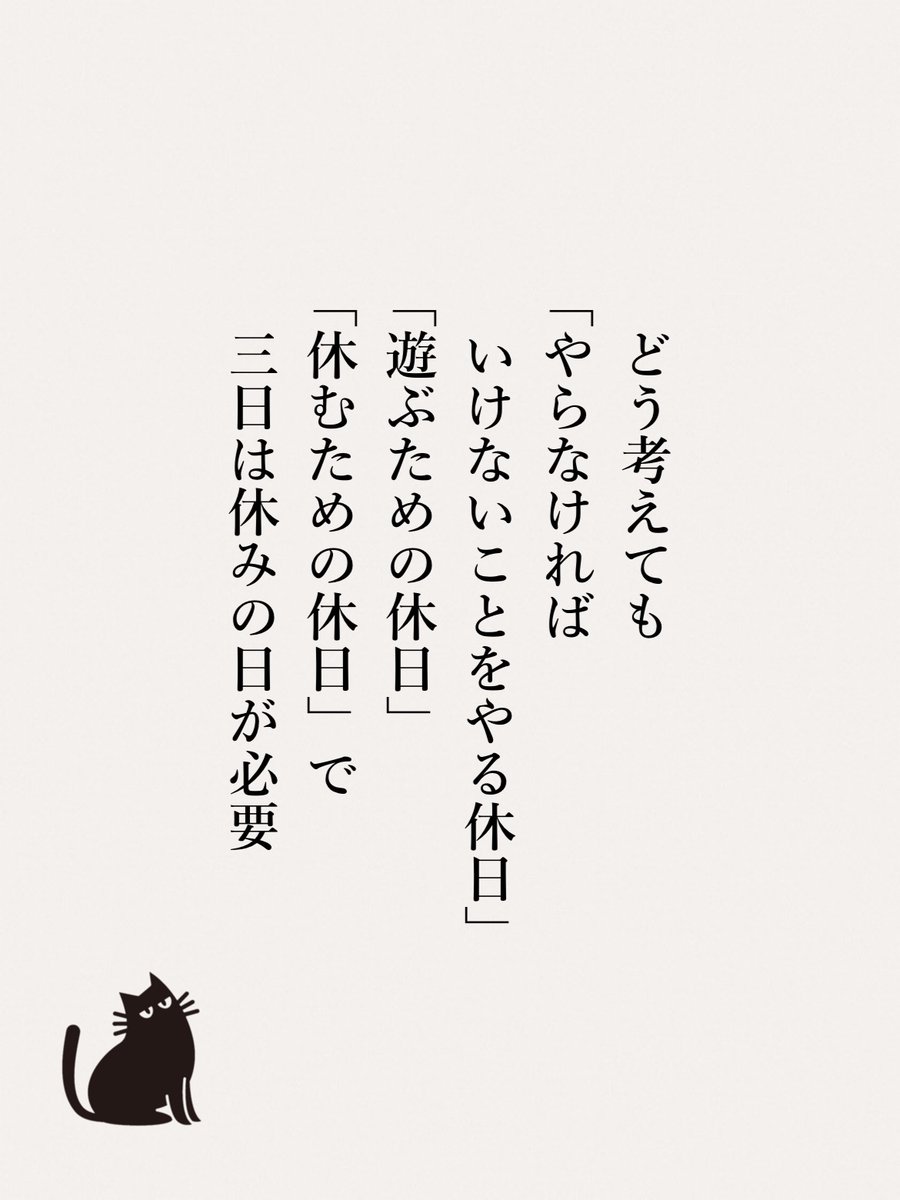 どう考えても
「やらなければ
いけないことをやる休日」
「遊ぶための休日」
「休むための休日」で
三日は休みの日が必要